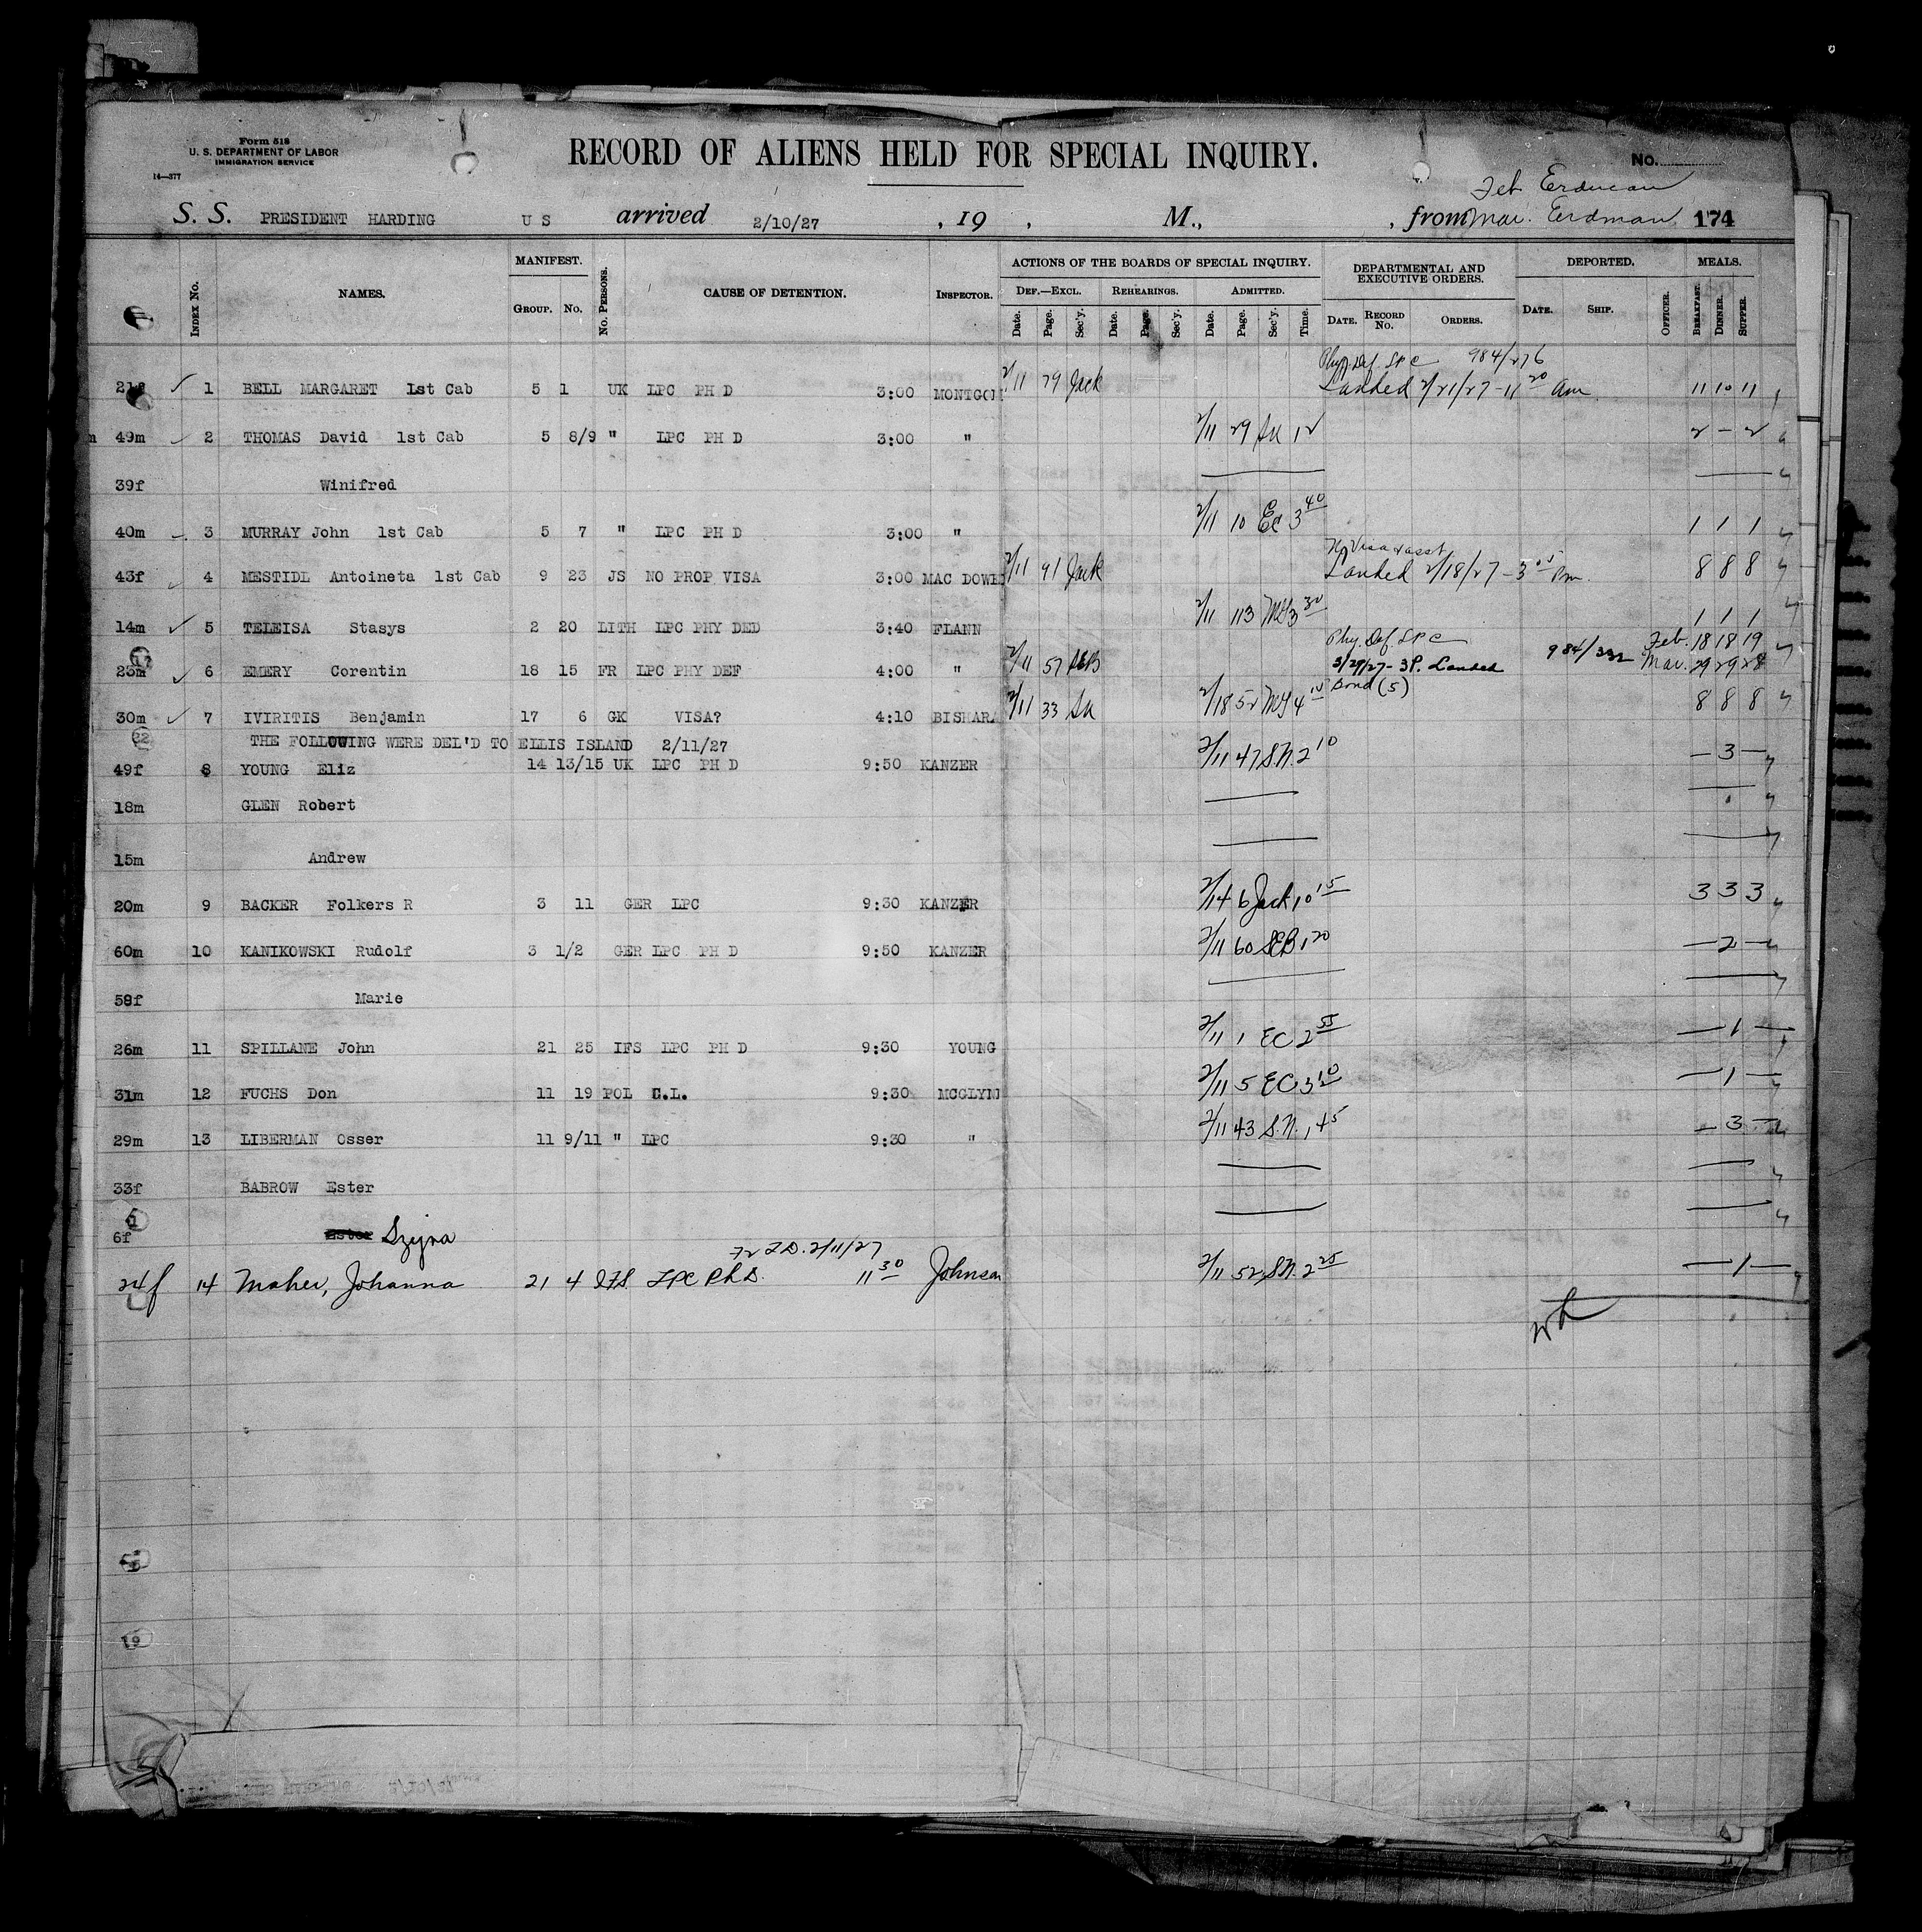 Form 518
U. S. DEPARTMENT OF LABOR
IMMIGRATION SERVICE
14—377
RECORD OF ALIENS HELD FOR SPECIAL INQUIRY.
No.
Feb. Erdman
S. S. PRESIDENT HARDING U S arrived 2/10/27 , 19 , M., , from Mar. Erdman 174
INDEX No. NAMES. MANIFEST. No. PERSONS. CAUSE OF DETENTION. INSPECTOR. ACTIONS OF THE BOARDS OF SPECIAL INQUIRY. DEPARTMENTAL AND EXECUTIVE ORDERS. DEPORTED. MEALS.
GROUP. No. DEF.—EXCL. REHEARINGS. ADMITTED.
Date. Page. Sec'y. Date. Page. Sec'y. Date. Page. Sec'y. Time. DATE. RECORD No. ORDERS. DATE. SHIP. OFFICER. BREAKFAST. DINNER. SUPPER.
Phy. Def. LPC 984/276
21f 1 BELL MARGARET 1st Cab 5 1 UK LPC PH D 3:00 MONTGOM 2/11 79 Jack Landed 2/21/27 - 11 20 am 11 10 11
49m 2 THOMAS David 1st Cab 5 8/9 " LPC PH D 3:00 " 2/11 29 SU 12 2 - 2
39f Winifred
40m 3 MURRAY John 1st Cab 5 7 " LPC PH D 3:00 " 2/11 10 EC 3 40 1 1 1
43f 4 MESTIDL Antoineta 1st Cab 9 23 JS NO PROP VISA 3:00 MAC DOWE 2/11 91 Jack Landed 2/18/27 - 3 05 Pm. 8 8 8
14m 5 TELEISA Stasys 2 20 LITH LPC PHY DED 3:40 FLANN 2/11 113 MG 3 30 1 1 1
Phy. Def. LPC Feb. 18 18 19
23m 6 EMERY Corentin 18 15 FR LPC PHY DEF 4:00 " 2/11 57 SEB 3/29/27 - 3P. Landed 984/332 Mar. 29 29 28
Bond (5)
30m 7 IVIRITIS Benjamin 17 6 GK VISA? 4:10 BISHARA 2/11 33 SU 2/18 52 MG 4 15 8 8 8
22 THE FOLLOWING WERE DEL'D TO ELLIS ISLAND 2/11/27
49f 8 YOUNG Eliz 14 13/15 UK LPC PH D 9:50 KANZER 2/11 47 S.N. 2 10 - 3 -
18m GLEN Robert
15m Andrew
20m 9 BACKER Folkers R 3 11 GER LPC 9:30 KANZER 2/14 6 Jack 10 15 3 3 3
60m 10 KANIKOWSKI Rudolf 3 1/2 GER LPC PH D 9:50 KANZER 2/11 60 SEB 1 20 - 2 -
58f Marie
26m 11 SPILLANE John 21 25 IFS LPC PH D 9:30 YOUNG 2/11 1 EC 2 55 - 1 -
31m 12 FUCHS Don 11 19 POL C.L. 9:30 MCGLYNN 2/11 5 EC 3 10 - 1 -
29m 13 LIBERMAN Osser 11 9/11 " LPC 9:30 " 2/11 43 S.N. 1 45 - 3 -
33f BABROW Ester
6f Ester Szyra
24f 14 Maher, Johanna 21 4 IFS. LPC Ph D. 11 30 Johnson 2/11 52 S.N. 2 25 - 1 -
19